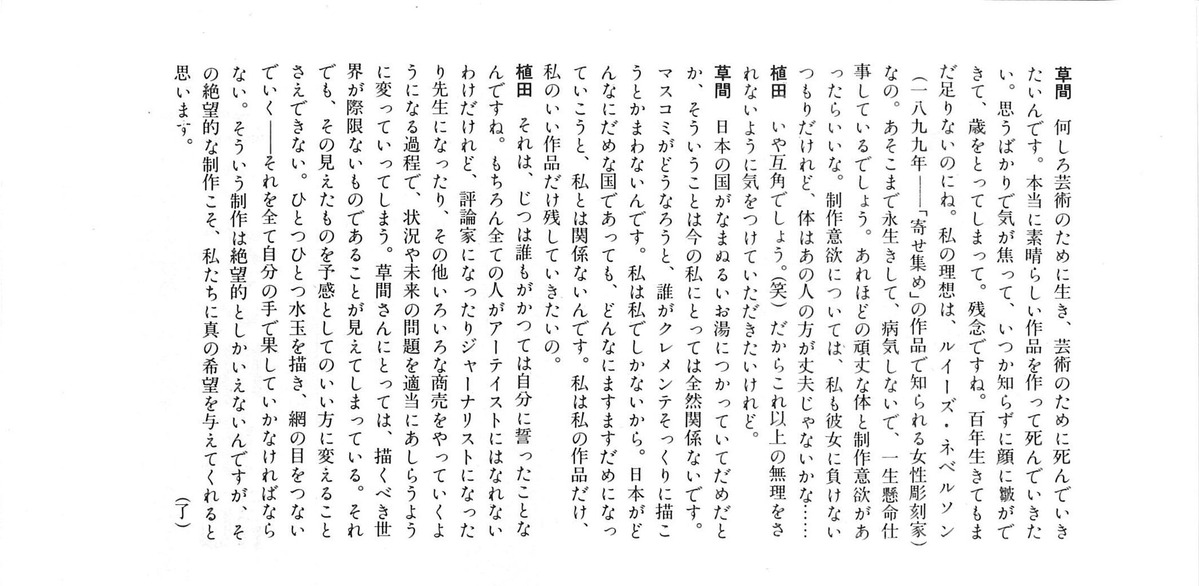 草間　何しろ芸術のために生き、芸術のために死んでいき
たいんです。本当に素晴らしい作品を作って死んでいきた
い。思うばかりで気が焦って、いつか知らずに顔に皺がで
きて、歳をとってしまって。残念ですね。百年生きてもま
だ足りないのにね。私の理想は、ルイーズ・ネベルソン
（一八九九年——「寄せ集め」の作品で知られる女性彫刻家）
なの。あそこまで永生きして、病気しないで、一生懸命仕
事しているでしょう。あれほどの頑丈な体と制作意欲があ
ったらいいな。制作意欲については、私も彼女に負けない
つもりだけれど、体はあの人の方が丈夫じゃないかな……
植田　いや互角でしょう。（笑）だからこれ以上の無理をさ
れないように気をつけていただきたいけれど。
草間　日本の国がなまぬるいお湯につかっていてだめだと
か、そういうことは今の私にとっては全然関係ないです。
マスコミがどうなろうと、誰がクレメンテそっくりに描こ
うとかまわないんです。私は私でしかないから。日本がど
んなにだめな国であっても、どんなにますますだめになっ
ていこうと、私とは関係ないんです。私は私の作品だけ、
私のいい作品だけ残していきたいの。
植田　それは、じつは誰もがかつては自分に誓ったことな
んですね。もちろん全ての人がアーテイストにはなれない
わけだけれど、評論家になったりジャーナリストになった
り先生になったり、その他いろいろな商売をやっていくよ
うになる過程で、状況や未来の問題を適当にあしらうよう
に変っていってしまう。草間さんにとっては、描くべき世
界が際限ないものであることが見えてしまっている。それ
でも、その見えたものを予感としてのいい方に変えること
さえできない。ひとつひとつ水玉を描き、網の目をつない
でいく——それを全て自分の手で果していかなければなら
ない。そういう制作は絶望的としかいえないんですが、そ
の絶望的な制作こそ、私たちに真の希望を与えてくれると
思います。
（了）